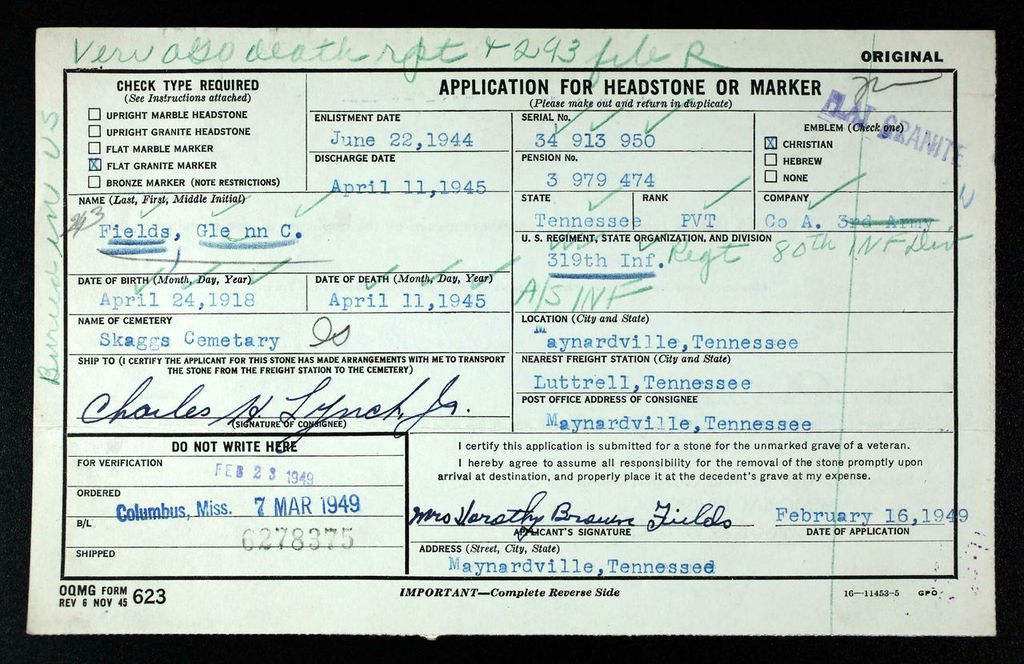 Veri also death rpt & 293 file R
ORIGINAL
Buried in US
CHECK TYPE REQUIRED
(See Instructions attached)
UPRIGHT MARBLE HEADSTONE
UPRIGHT GRANITE HEADSTONE
FLAT MARBLE MARKER
X FLAT GRANITE MARKER
BRONZE MARKER (NOTE RESTRICTIONS)
APPLICATION FOR HEADSTONE OR MARKER
(Please make out and return in duplicate)
ENLISTMENT DATE
June 22,1944
DISCHARGE DATE
April 11,1945
SERIAL No.
34 913 950
PENSION No.
3 979 474
EMBLEM (Check one)
X CHRISTIAN
HEBREW
NONE
FLAT GRANITE
NAME (Last, First, Middle Initial)
293
Fields, Glenn C.
STATE
Tennessee
RANK
PVT
COMPANY
Co A. 3rd Army
U. S. REGIMENT, STATE ORGANIZATION, AND DIVISION
319th Inf. Regt 80th INF Div
A/S INF
DATE OF BIRTH (Month, Day, Year)
April 24,1918
DATE OF DEATH (Month, Day, Year)
April 11,1945
NAME OF CEMETERY
Skaggs Cemetary
LOCATION (City and State)
Maynardville,Tennessee
SHIP TO (I CERTIFY THE APPLICANT FOR THIS STONE HAS MADE ARRANGEMENTS WITH ME TO TRANSPORT
THE STONE FROM THE FREIGHT STATION TO THE CEMETERY)
Charles H. Lynch, Jr.
(SIGNATURE OF CONSIGNEE)
NEAREST FREIGHT STATION (City and State)
Luttrell,Tennessee
POST OFFICE ADDRESS OF CONSIGNEE
Maynardville,Tennessee
DO NOT WRITE HERE
FOR VERIFICATION
FEB 23 1949
ORDERED
Columbus, Miss. 7 MAR 1949
B/L
6278375
SHIPPED
I certify this application is submitted for a stone for the unmarked grave of a veteran.
I hereby agree to assume all responsibility for the removal of the stone promptly upon
arrival at destination, and properly place it at the decedent's grave at my expense.
Mrs Dorothy Brown Fields
APPLICANT'S SIGNATURE
February 16,1949
DATE OF APPLICATION
ADDRESS (Street, City, State)
Maynardville,Tennessee
OQMG FORM 623
REV 6 NOV 45
IMPORTANT—Complete Reverse Side
16—11453-5 GPO